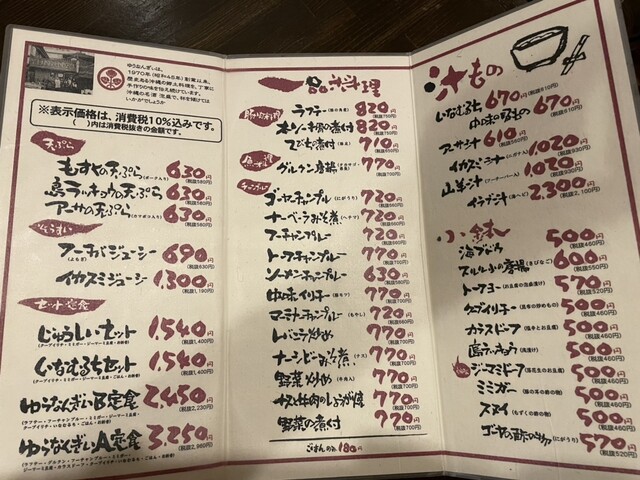 ゆうなんぎいは、
1970年(昭和45年)創業以来、
歴史ある沖縄の郷土料理を、丁寧に
手作りの味を伝え続けています。
沖縄の名酒 泡盛で、杯を傾けては
いかがでしょうか
※表示価格は、消費税10%込みです。
( )内は消費税抜きの金額です。
天ぷら
もずやの天ぷら 630円 (税抜580円)
島ラッキョウの天ぷら 630円 (税抜580円)
アーサの天ぷら 630円 (税抜580円)
じゅうすい
フーチバジューシー (よもぎ) 690円 (税抜630円)
イカスミジューシー 1,300円 (税抜1,190円)
セット・定食
じゅうしいセット 1,540円 (税抜1,400円)
いなむるちセット 1,540円 (税抜1,400円)
ゆうなんぎいB定食 2,450円 (税抜2,230円)
ゆうなんぎいA定食 3,250円 (税抜2,960円)
一品料理
豚肉料理
ラフテー 820円
本ソーキ骨の煮付 820円
てびち煮付 710円
魚料理
グルクン唐揚 770円 (税抜700円)
チャンプルー
ゴーヤチャンプルー (にがうり) 770円 (税抜700円)
ナーベーラみそ煮 (ヘチマ) 770円 (税抜700円)
フーチャンプルー 770円 (税抜700円)
トーフチャンプルー 770円 (税抜700円)
ソーメンチャンプルー 630円 (税抜580円)
中味イリチー 770円 (税抜700円)
マーミナチャンプルー (もやし) 720円
レバニラ炒め 770円 (税抜700円)
ナーシビーみそ煮 (ナス) 770円 (税抜700円)
野菜炒め 770円 (税抜700円)
ナスと牛肉のしょうが焼 770円 (税抜700円)
野菜の煮付 770円 (税抜700円)
ごはんのみ 180円
汁もの
いなむるち 670円 (税抜610円)
中味の吸もの 670円 (税抜610円)
アーサ汁 610円
イカスミ汁 1020円 (税抜930円)
山羊汁 1020円 (税抜930円)
イラブー汁 2,300円 (税抜2,100円)
小鉢
海ぶどう 500円 (税抜460円)
スルルー小の唐揚 (きびなご) 600円 (税抜550円)
トーフヨー 570円 (税抜520円)
クーブイリチー 500円 (税抜460円)
カラスドーフ 500円 (税抜460円)
島ラッキョウ 500円 (税抜460円)
ジーマミドーフ 500円 (税抜460円)
ミミガー 500円 (税抜460円)
スヌイ (もずくの酢の物) 500円 (税抜460円)
ゴーヤの酢の物 (にがうり) 570円 (税抜520円)